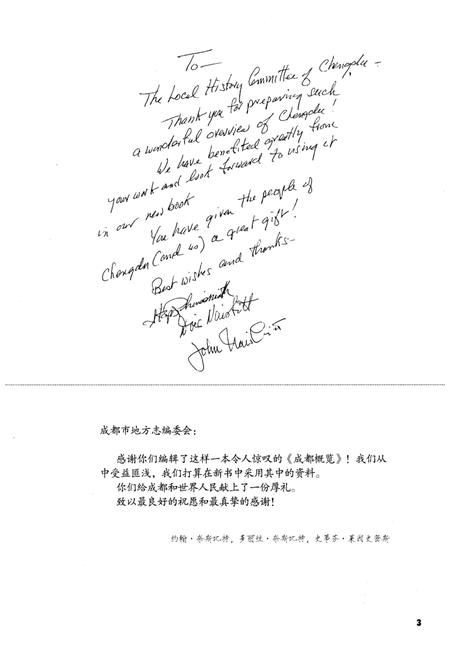 To—
The Local History Committee of Chengdu –
Thank you for preparing such
a wonderful overview of Chengdu!
We have benefited greatly from
your work and look forward to using it
in our new book
You have given the people of
Chengdu (and us) a great gift!
Best wishes and thanks–
Doris Naisbitt
John Naisbitt
成都市地方志编委会：
感谢你们编辑了这样一本令人惊叹的《成都概览》！我们从
中受益匪浅，我们打算在新书中采用其中的资料。
你们给成都和世界人民献上了一份厚礼。
致以最良好的祝愿和最真挚的感谢！
约翰·奈斯比特，多丽丝·奈斯比特，史蒂芬·莱因史密斯
3